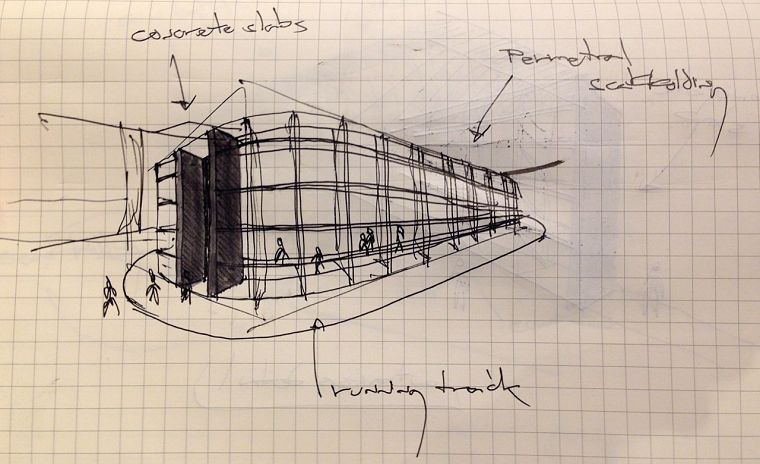 concrete slabs
Perimetral
scaffolding
running track